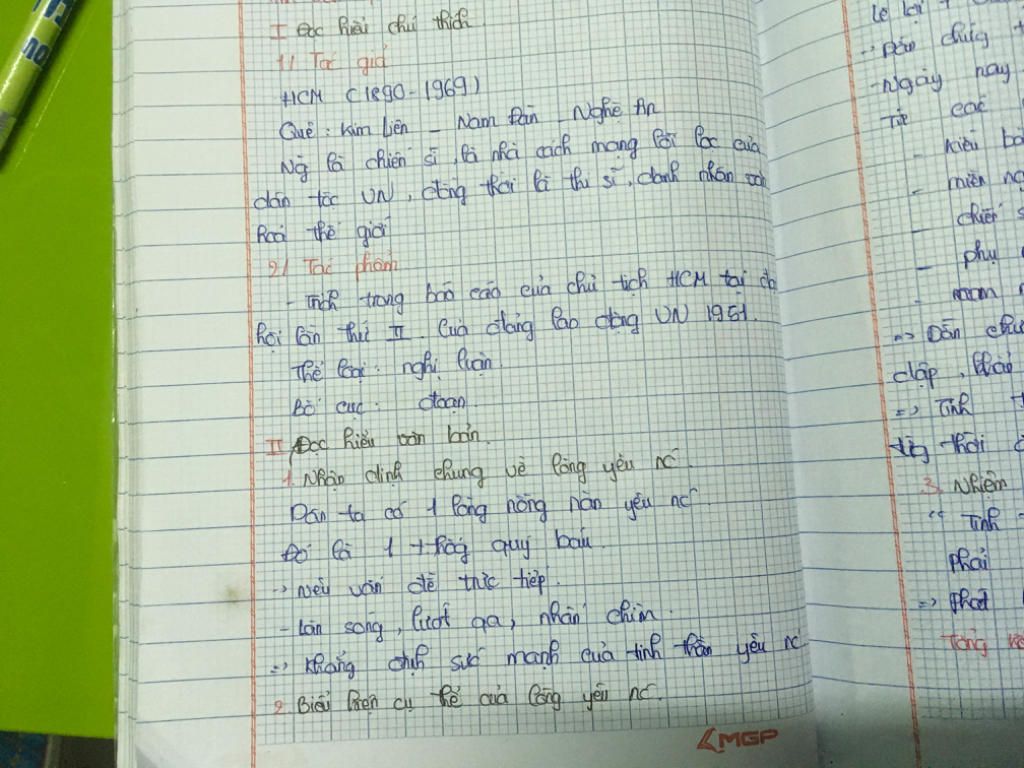 I Đọc hiểu chú thích
1) Tác giả
HCM (1890-1969)
Quê: Kim Liên - Nam Đàn - Nghệ An
Ng là chiến sĩ, là nhà cách mạng lỗi lạc của
dân tộc VN, đồng thời là thi sĩ, danh nhân
hoá thế giới
2) Tác phẩm
- Trích trong báo cáo của chủ tịch HCM tại đại
hội lần thứ II. Của đảng lao động VN 1951.
Thể loại: nghị luận.
Bố cục: đoạn
II Đọc hiểu văn bản.
1. Nhận định chung về lòng yêu nc.
Dân ta có 1 lòng nồng nàn yêu nc
Đó là 1 quý báu.
-> nêu vấn đề trực tiếp.
- làn sóng, lướt qa, nhấn chìm.
=> Khẳng định sức mạnh của tinh thần yêu nc
2. Biểu hiện cụ thể của lòng yêu nc.
MGP
-> Dẫn chứng
- Ngày nay
Từ các
- kiều bào
- miền
- chiến
- phụ
-
=> Dẫn
=> Tình
từng thời
3. Nhiệm
" Tinh
Phải
=> Phát
Tổng